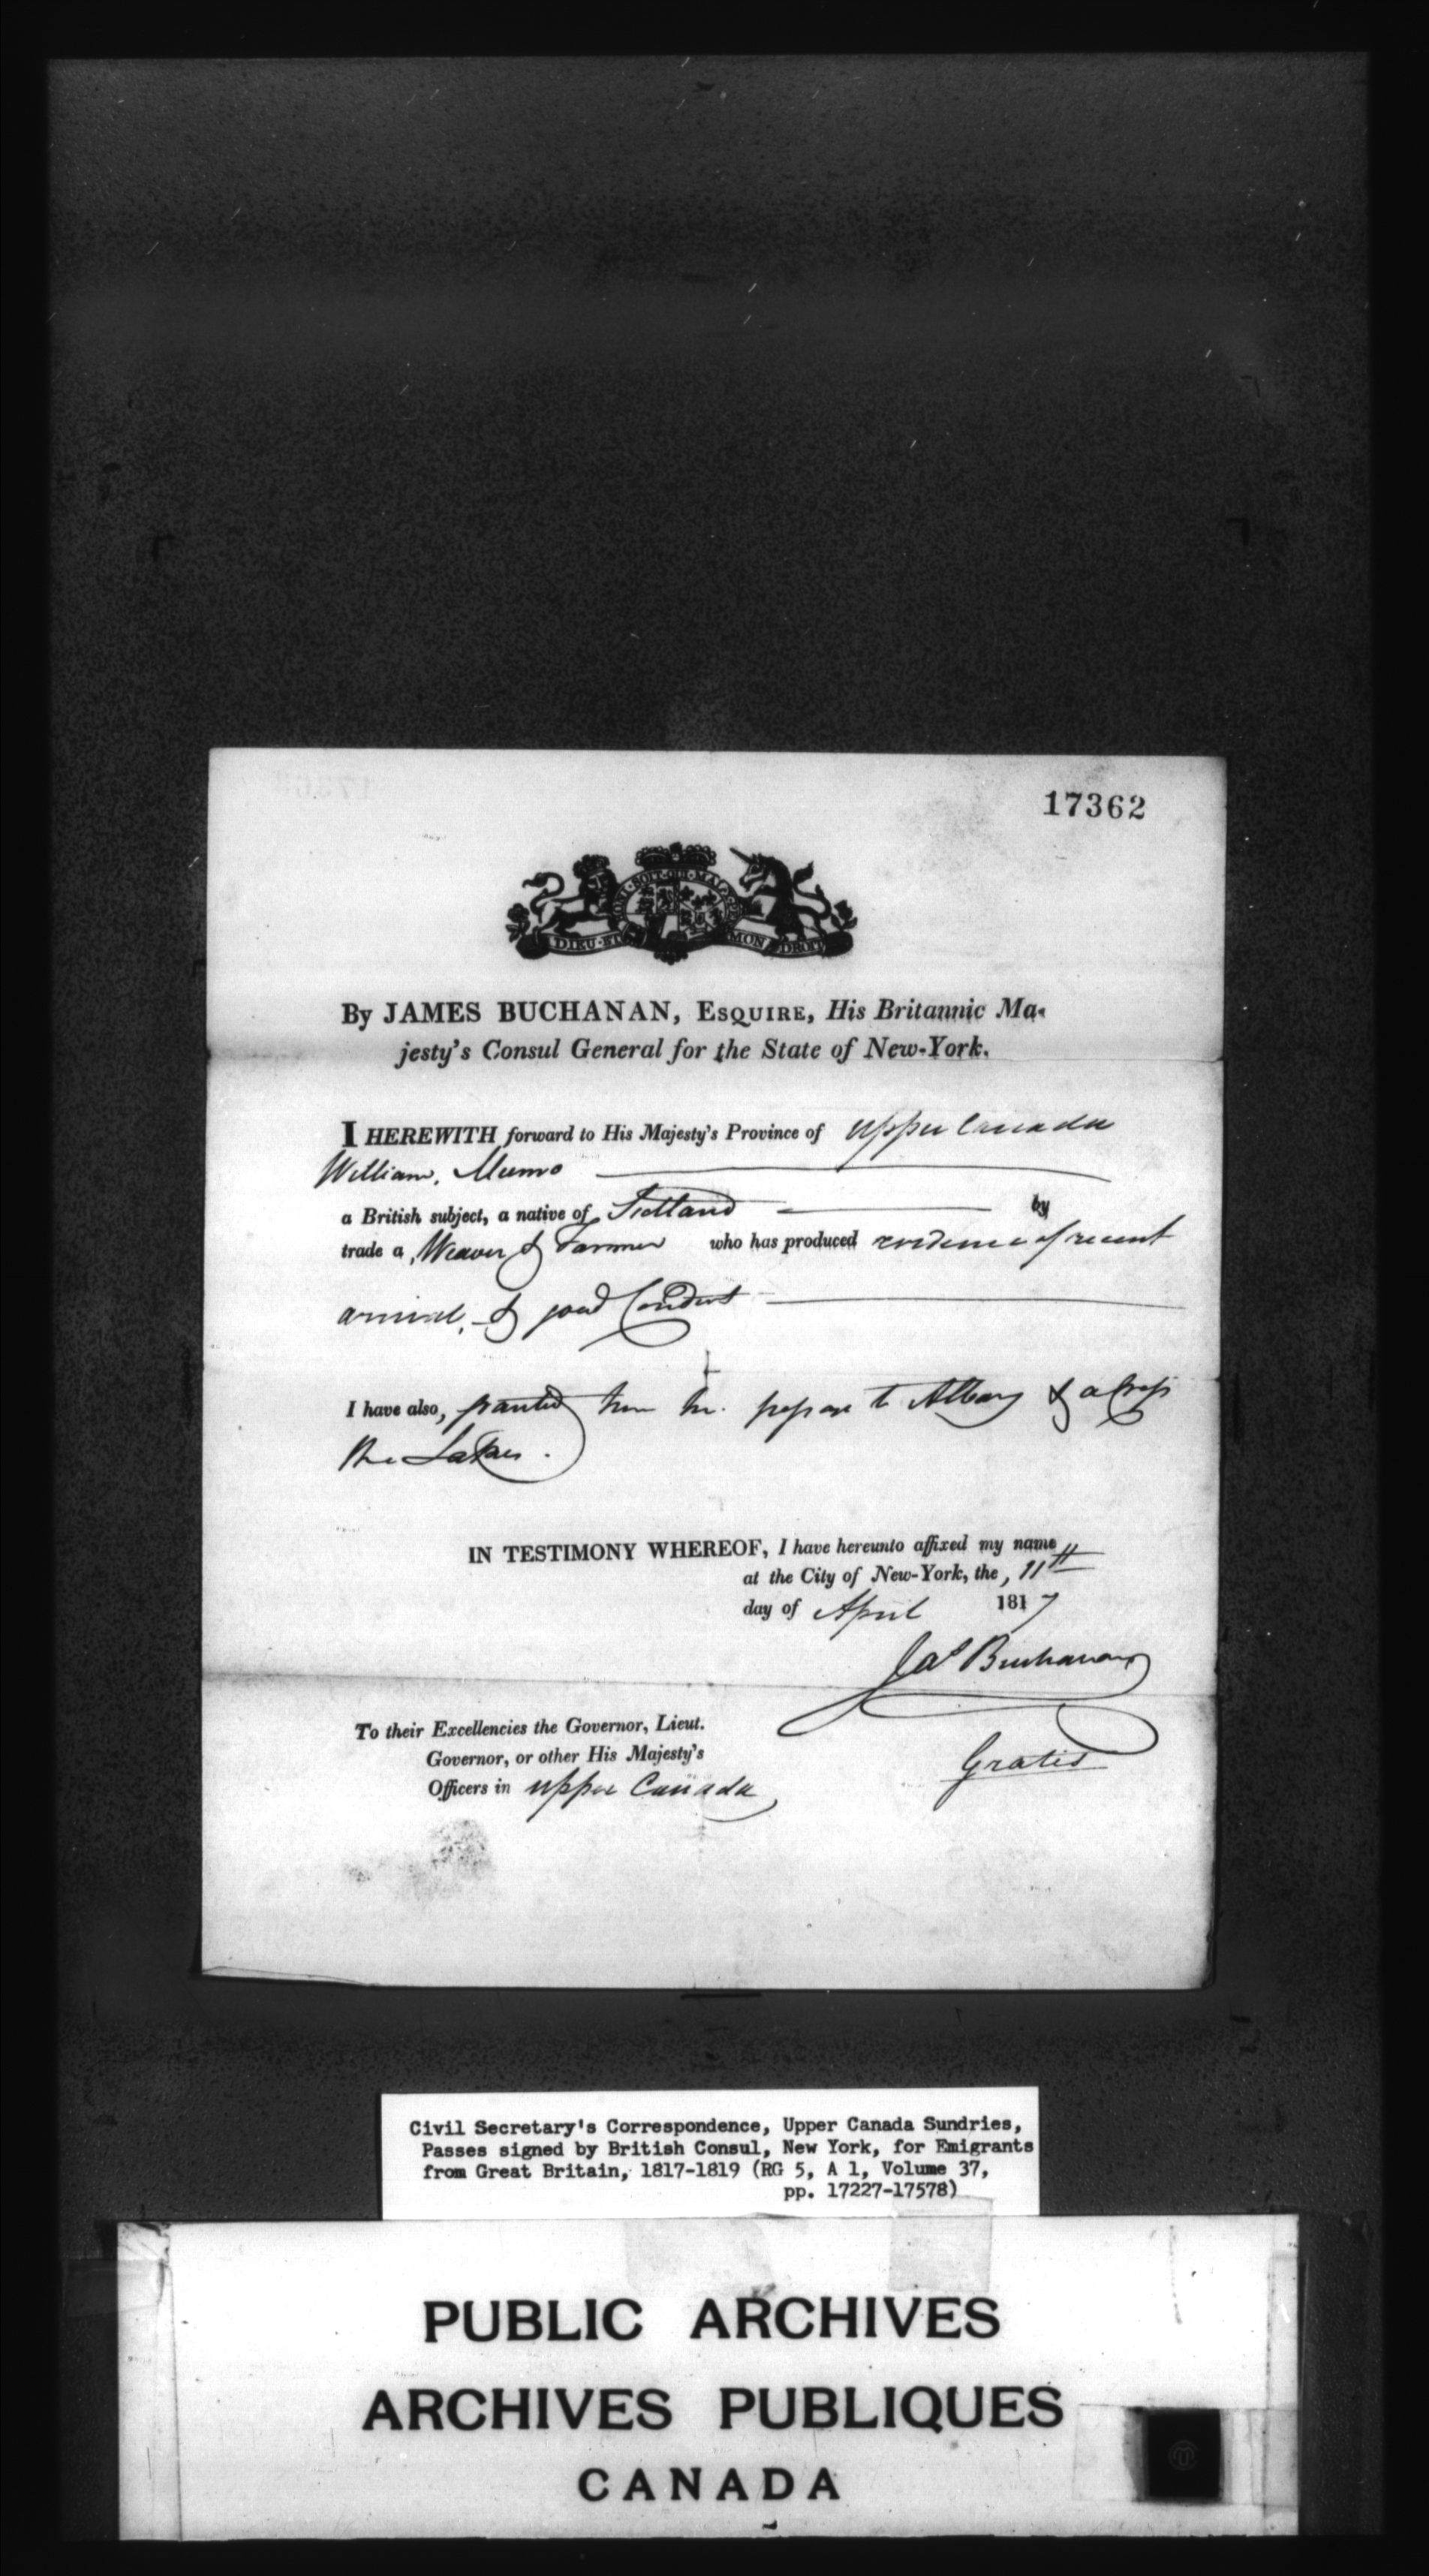 17362
HONI·SOIT·QUI·MAL·Y
DIEU·ET MON DROIT
By JAMES BUCHANAN, ESQUIRE, His Britannic Ma-
jesty's Consul General for the State of New-York.
I HEREWITH forward to His Majesty's Province of Upper Canada
William Munro
a British subject, a native of Scotland by
trade a Weaver & Farmer who has produced evidence of recent
arrival, & good Conduct
I have also, granted him his passage to Albany & across
the Lakes.
IN TESTIMONY WHEREOF, I have hereunto affixed my name
at the City of New-York, the, 11th
day of April 1817
Jas Buchanan
To their Excellencies the Governor, Lieut.
Governor, or other His Majesty's
Gratis
Officers in Upper Canada
Civil Secretary's Correspondence, Upper Canada Sundries,
Passes signed by British Consul, New York, for Emigrants
from Great Britain, 1817-1819 (RG 5, A 1, Volume 37,
pp. 17227-17578)
PUBLIC ARCHIVES
ARCHIVES PUBLIQUES
CANADA